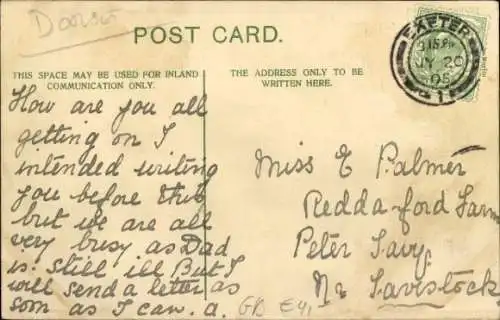 Dorset
POST CARD.
THIS SPACE MAY BE USED FOR INLAND
COMMUNICATION ONLY.
THE ADDRESS ONLY TO BE
WRITTEN HERE.
EXETER
JY 20
05
How are you all
getting on I
intended writing
you before this
but we are all
very busy as Dad
is still ill But I
will send a letter as
soon as I can. a.
Miss E Palmer
Redda-ford Farm
Peter Tavy
Nr Tavistock
GB E41